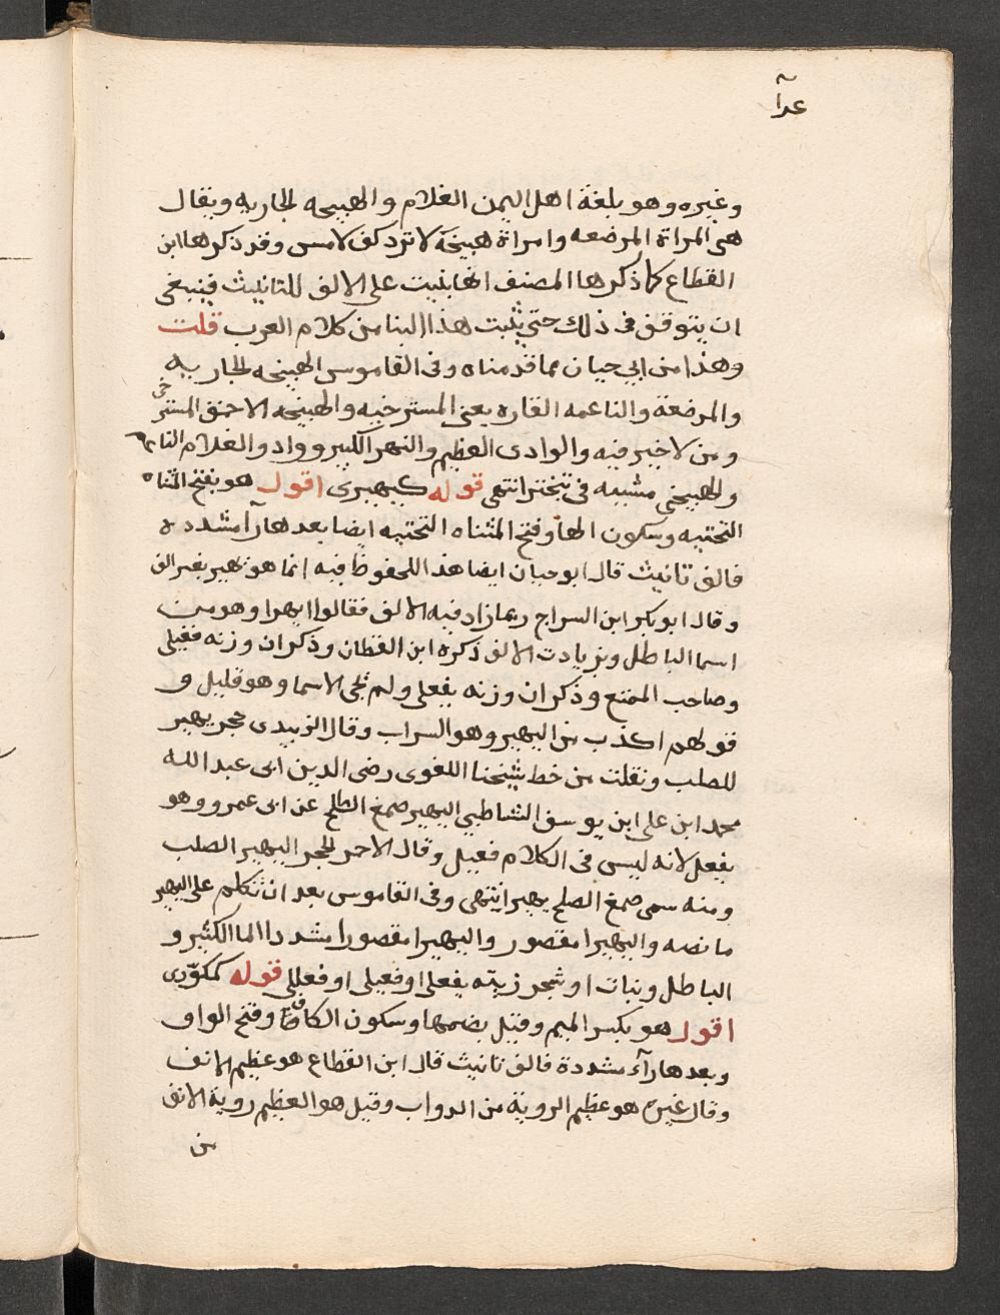 وغيره وهو بلغة اهل اليمن الغلام والهبيخه الجاريه ويقال
هي المراة المرضعه وامراة هبيخة لا ترد كف لامس وقد ذكرها ابن
القطاع كما ذكرها المصنف انها بنيت على الالف للتانيث فينبغي
ان يتوقف في ذلك حتى يثبت هذا البنا من كلام العرب قلت
وهذا من ابي حيان مما قدمناه وفي القاموس الهبيخه الجاريه
والمرضعة والناعمه القاره يعني المسترخيه والهبيخه الاحمق المسترخي
ومن لا خير فيه والوادى العظيم والنهر الكبير وواد والغلام الناعم
والهبيخي مشيه في تبختر انتهى قوله كيهيرى اقول هو بفتح المثناه
التحتيه وسكون الها وفتح المثناه التحتيه ايضا بعدها رآ مشدده
فالف تانيث قال ابو حيان ايضا هذا المحفوظ فيه انما هو يهير بغير الف
وقال ابو بكر ابن السراج ربما زاد فيه الالف فقالوا يهيرا وهو من
اسما الباطل وبزيادت الالف ذكره ابن القطان وذكر ان وزنه فعيلى
وصاحب الممتع وذكر ان وزنه يفعلى ولم تجى الاسما وهو قليل و
قولهم اكذب من اليهير وهو السراب وقال الزبيدى حجر يهير
للصلب ونقلت من خط شيخنا اللغوى رضى الدين ابى عبد الله
محمد ابن على ابن يوسف الشاطبي اليهير صمغ الطلح عن ابى عمرو وهو
يفعل لانه ليس فى الكلام فعيل وقال الاحمر الحجر اليهير الصلب
ومنه سمى صمغ الطلح يهير انتهى وفى القاموس بعد ان تكلم على اليهير
ما نصه واليهيرا مقصور واليهيرا مقصورا مشددا الما الكثير و
الباطل ونبات او شجر زيته يفعلى او فعيلى او فعللى قوله كمكورى
اقول هو بكسر الميم وقيل بضمها وسكون الكاف وفتح الواو
وبعدها رآء مشددة فالف تانيث قال ابن القطاع هو عظيم الانف
وقال غيره هو عظيم الروية من الدواب وقيل هو العظيم روية الانف
من